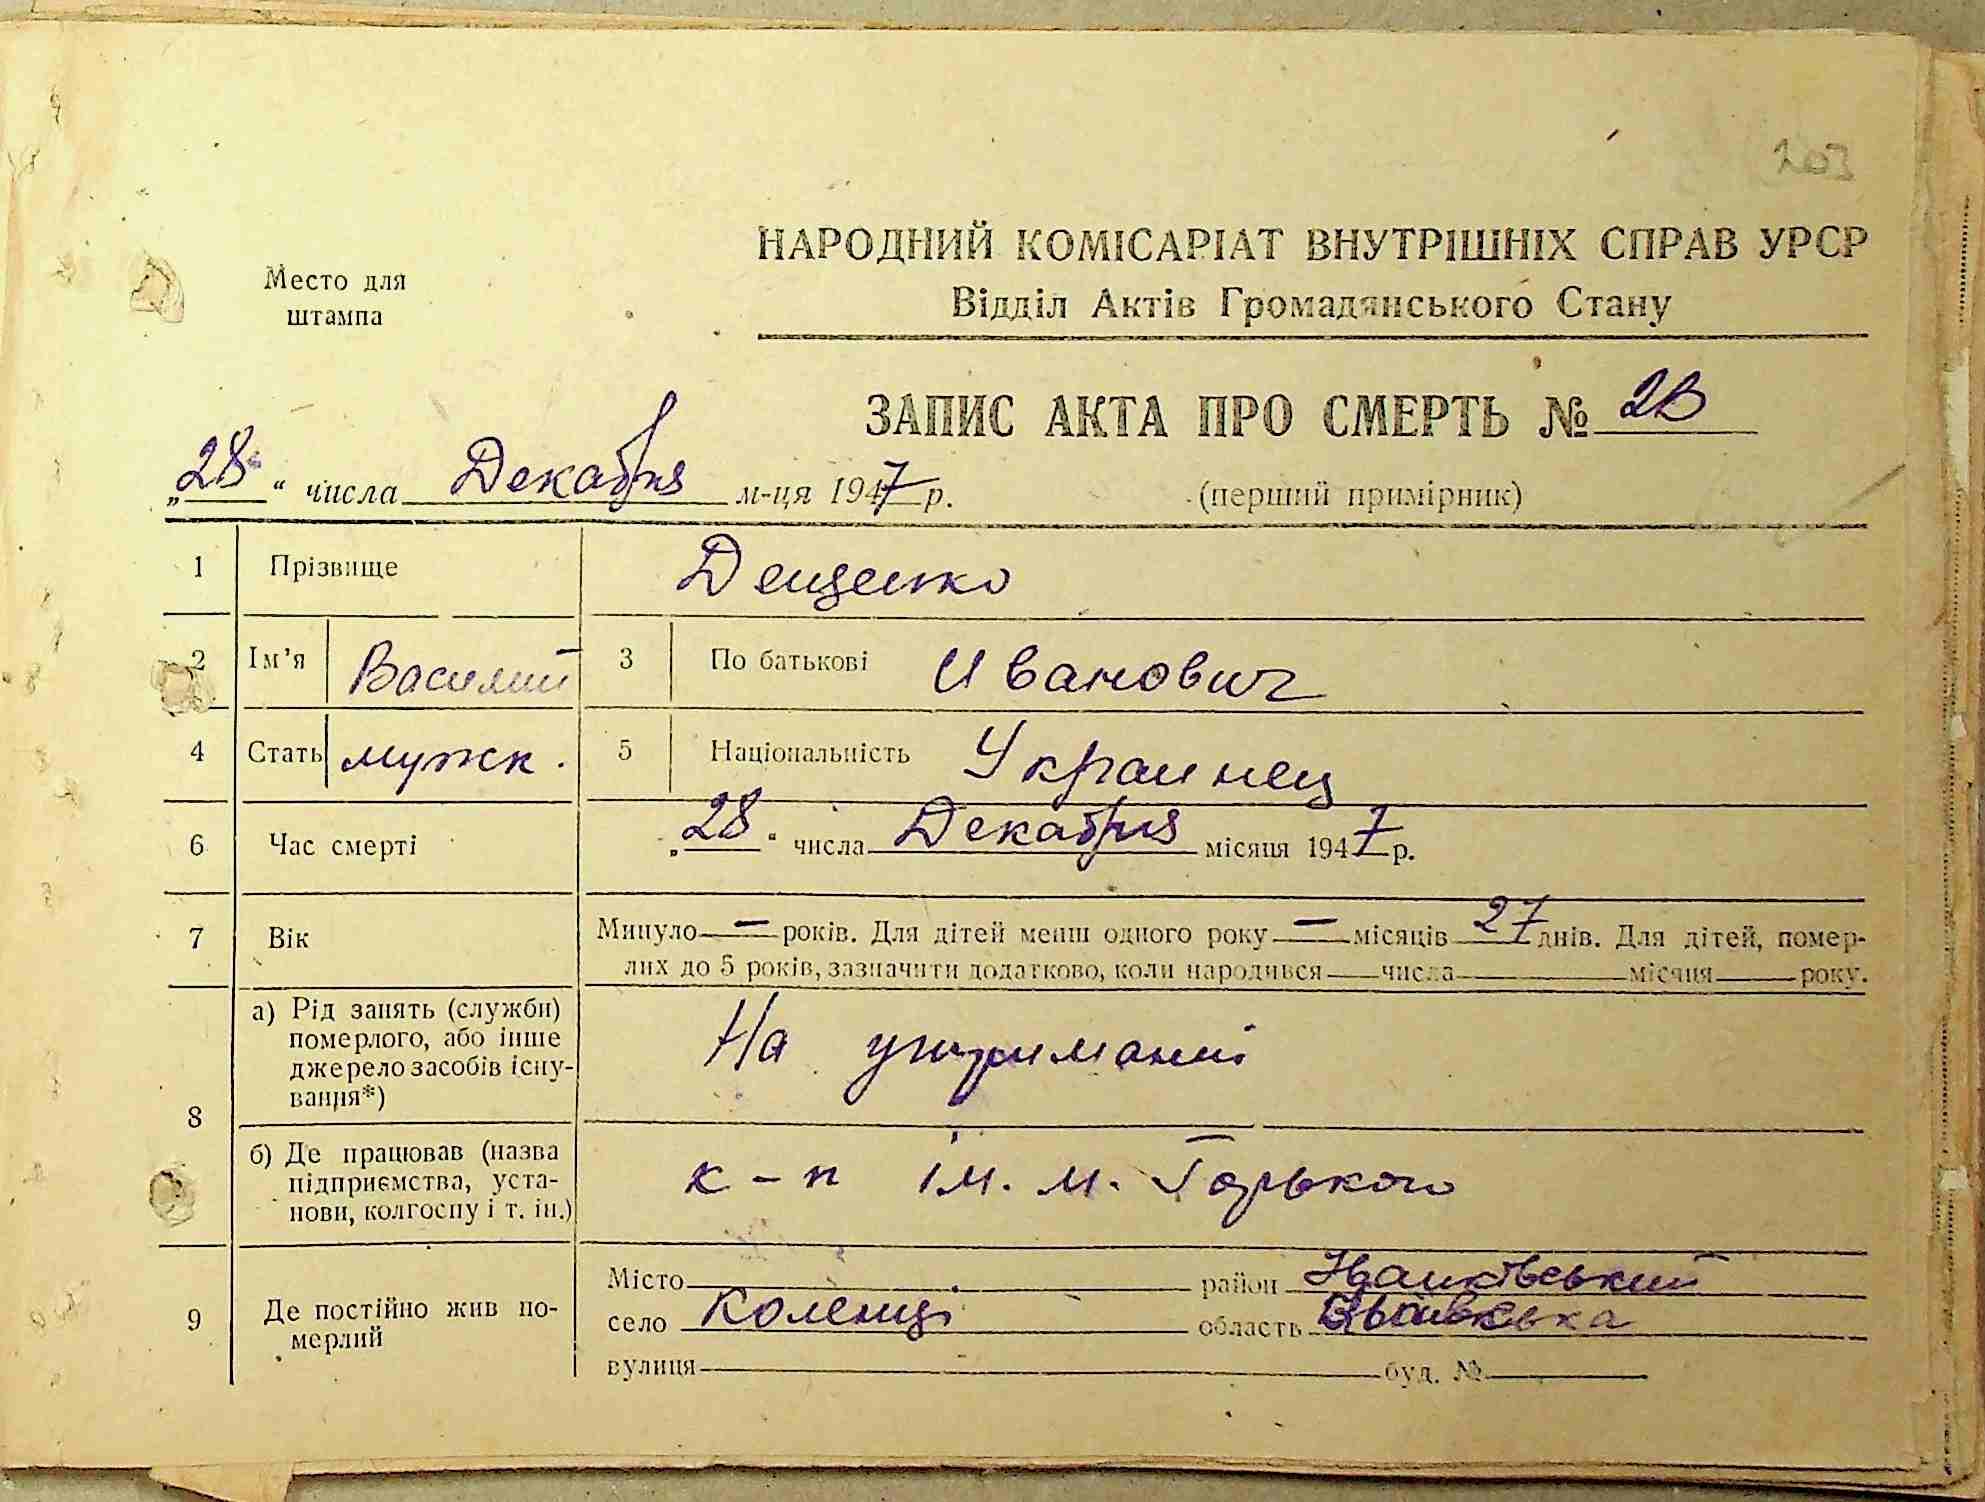 203
НАРОДНИЙ КОМІСАРІАТ ВНУТРІШНІХ СПРАВ УРСР
Відділ Актів Громадянського Стану
Место для
штампа
ЗАПИС АКТА ПРО СМЕРТЬ №
„28“ числа Декабря м-ця 1947 р. (перший примірник)
1 Прізвище Дещенко
2 Ім'я Василий 3 По батькові Иванович
4 Стать мужк. 5 Національність Украинец
6 Час смерті „28“ числа Декабря місяця 1947 р.
7 Вік Минуло — років. Для дітей менш одного року — місяців 27 днів. Для дітей, помер-
лих до 5 років, зазначити додатково, коли народився числа місяця року.
8 а) Рід занять (служби)
померлого, або інше
джерело засобів існу-
вання*)
На утриманні
б) Де працював (назва
підприємства, уста-
нови, колгоспу і т. ін.)
к-п ім. М. Горького
9 Де постійно жив по-
мерлий
Місто район Іванківський
село Коленці область
вулиця буд. №